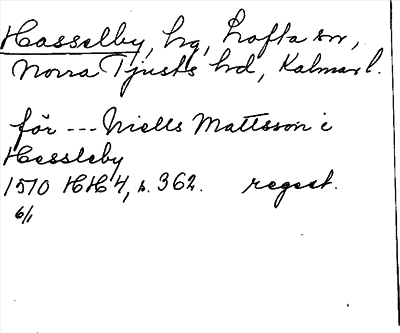 Hasselby, hg, Lofta sn,
Norra Tjusts hd, Kalmar l.
för --- Niells Mattsson i
Hessleby
1570 HH4, s. 362. regest.
6/1